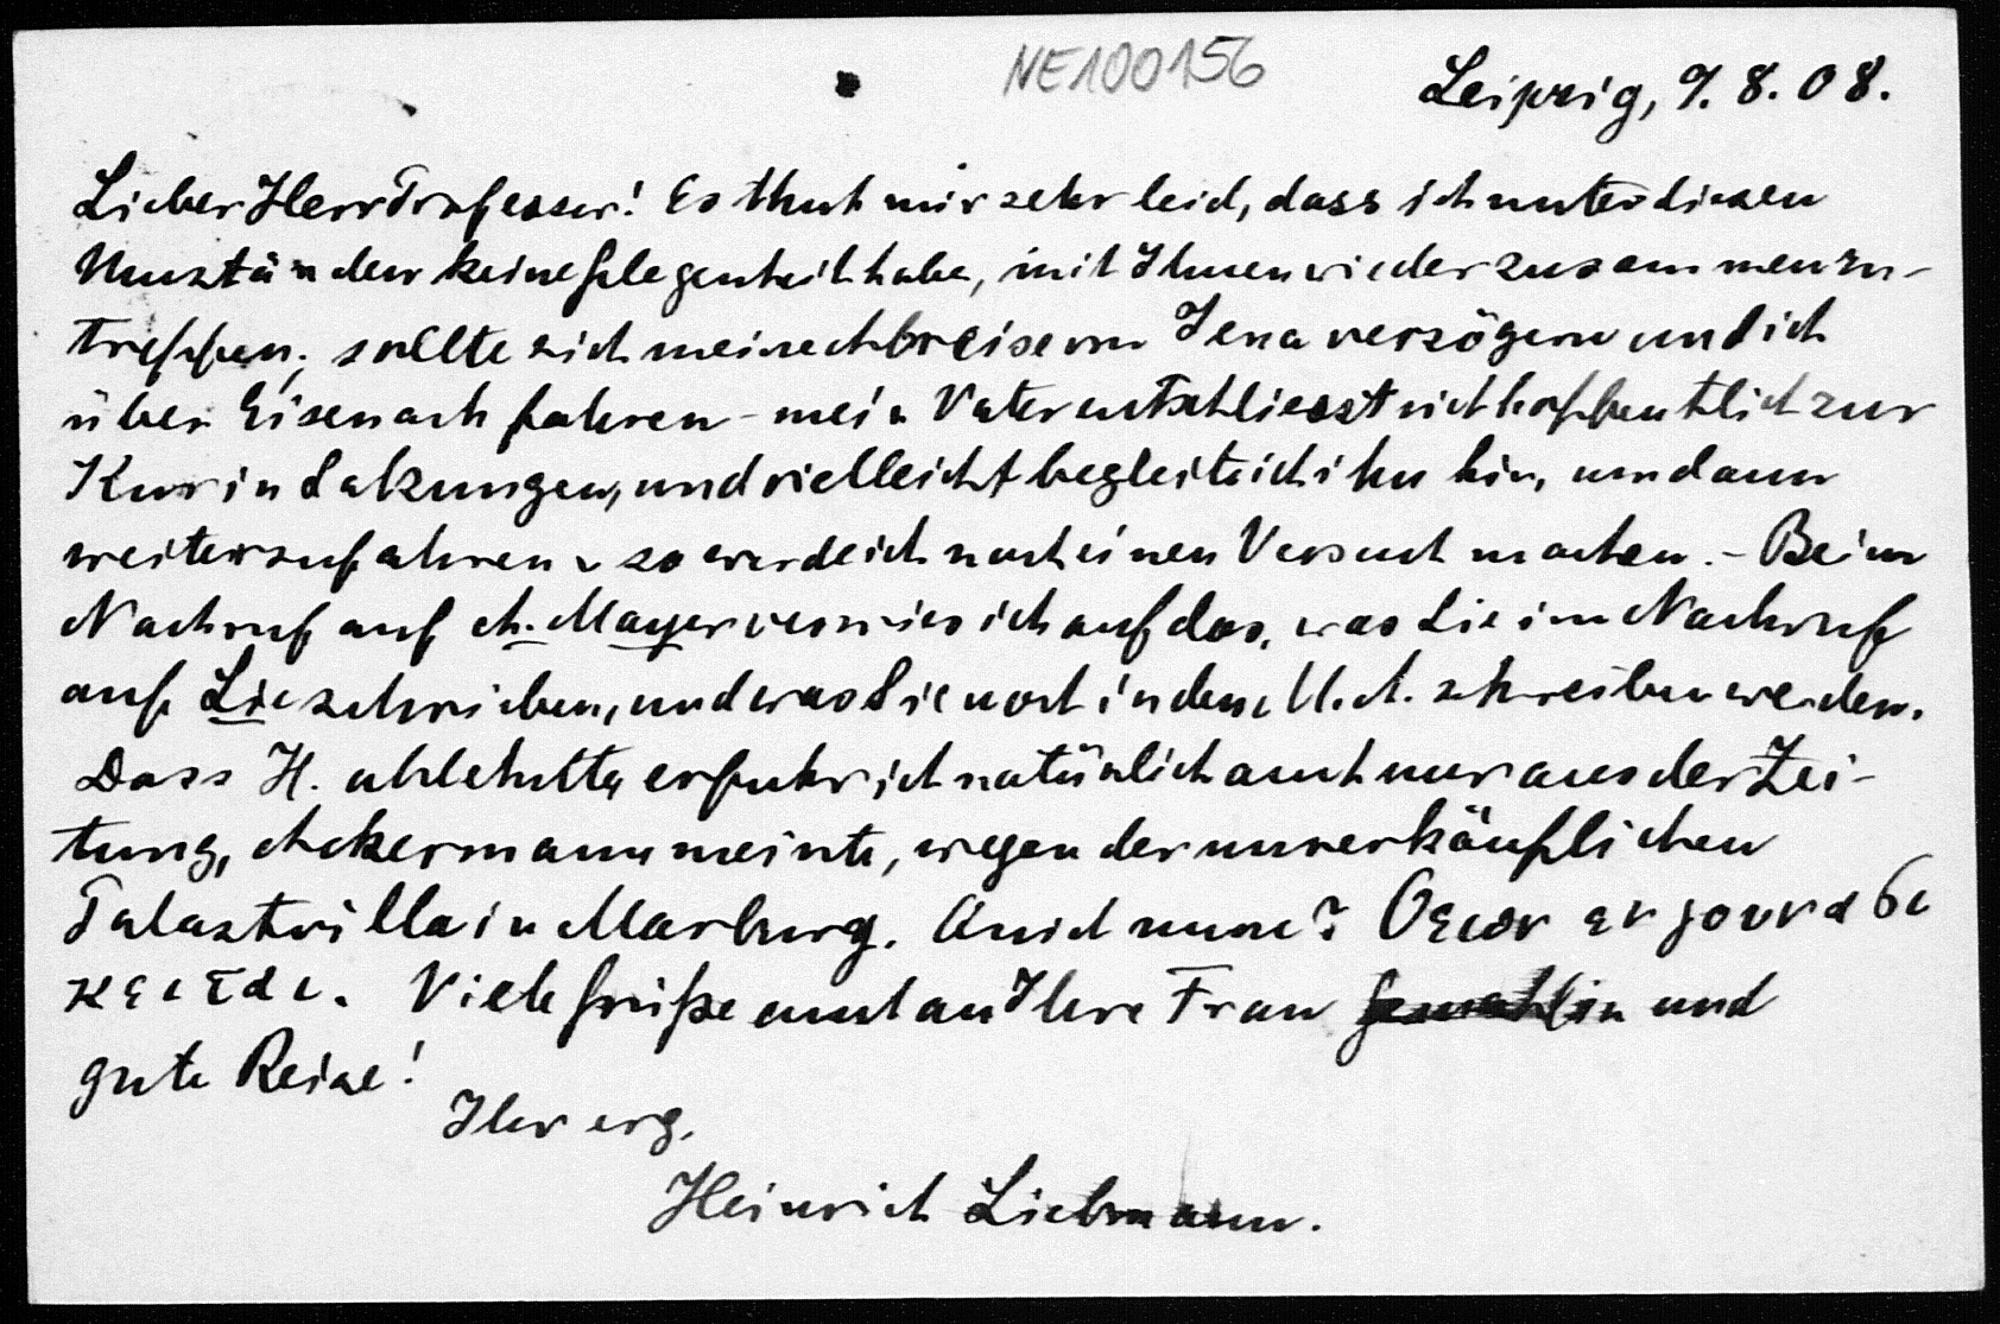 NE100156
Leipzig, 9. 8. 08.
Lieber Herr Professor! Es thut mir sehr leid, dass ich unter diesen
Umständen keine Gelegenheit habe, mit Ihnen wieder zusammenzu-
treffen; sollte sich meine Abreise von Jena verzögern und ich
über Eisenach fahren – mein Vater entschliesst sich hoffentlich zur
Kur in Salzungen, und vielleicht begleite ich ihn hin, um dann
weiterzufahren – so werde ich noch einen Versuch machen. – Beim
Nachruf auf A. Mayer verwies ich auf das, was Sie im Nachruf
auf Lie schrieben, und was Sie noch in den M. A. schreiben werden.
Dass H. ablehnte, erfuhr ich natürlich auch nur aus der Zei-
tung, Ackermann meinte, wegen der unverkäuflichen
Palastvilla in Marburg. Quid nunc? Θεῶν ἐν γούνασι
κεῖται. Viele Grüße auch an Ihre Frau Gemahlin und
gute Reise!
Ihr erg.
Heinrich Liebmann.